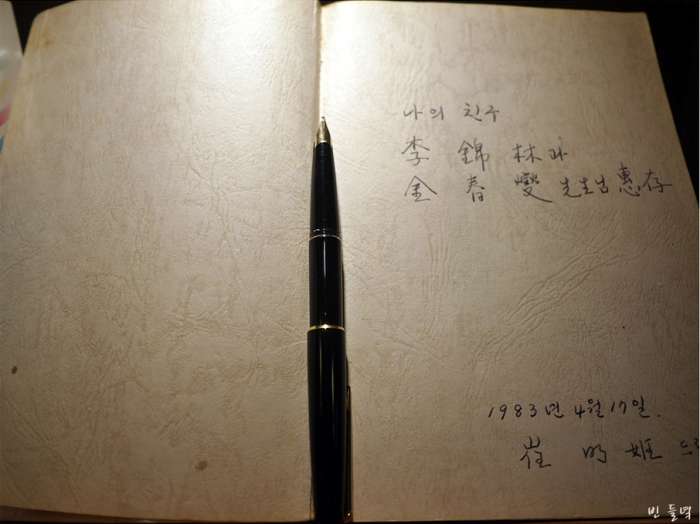 나의 친구
李 錦 林과
金 春 燮 先生님 惠存
1983년 4월 17일.
崔 明 姬 드림
빈 들녘